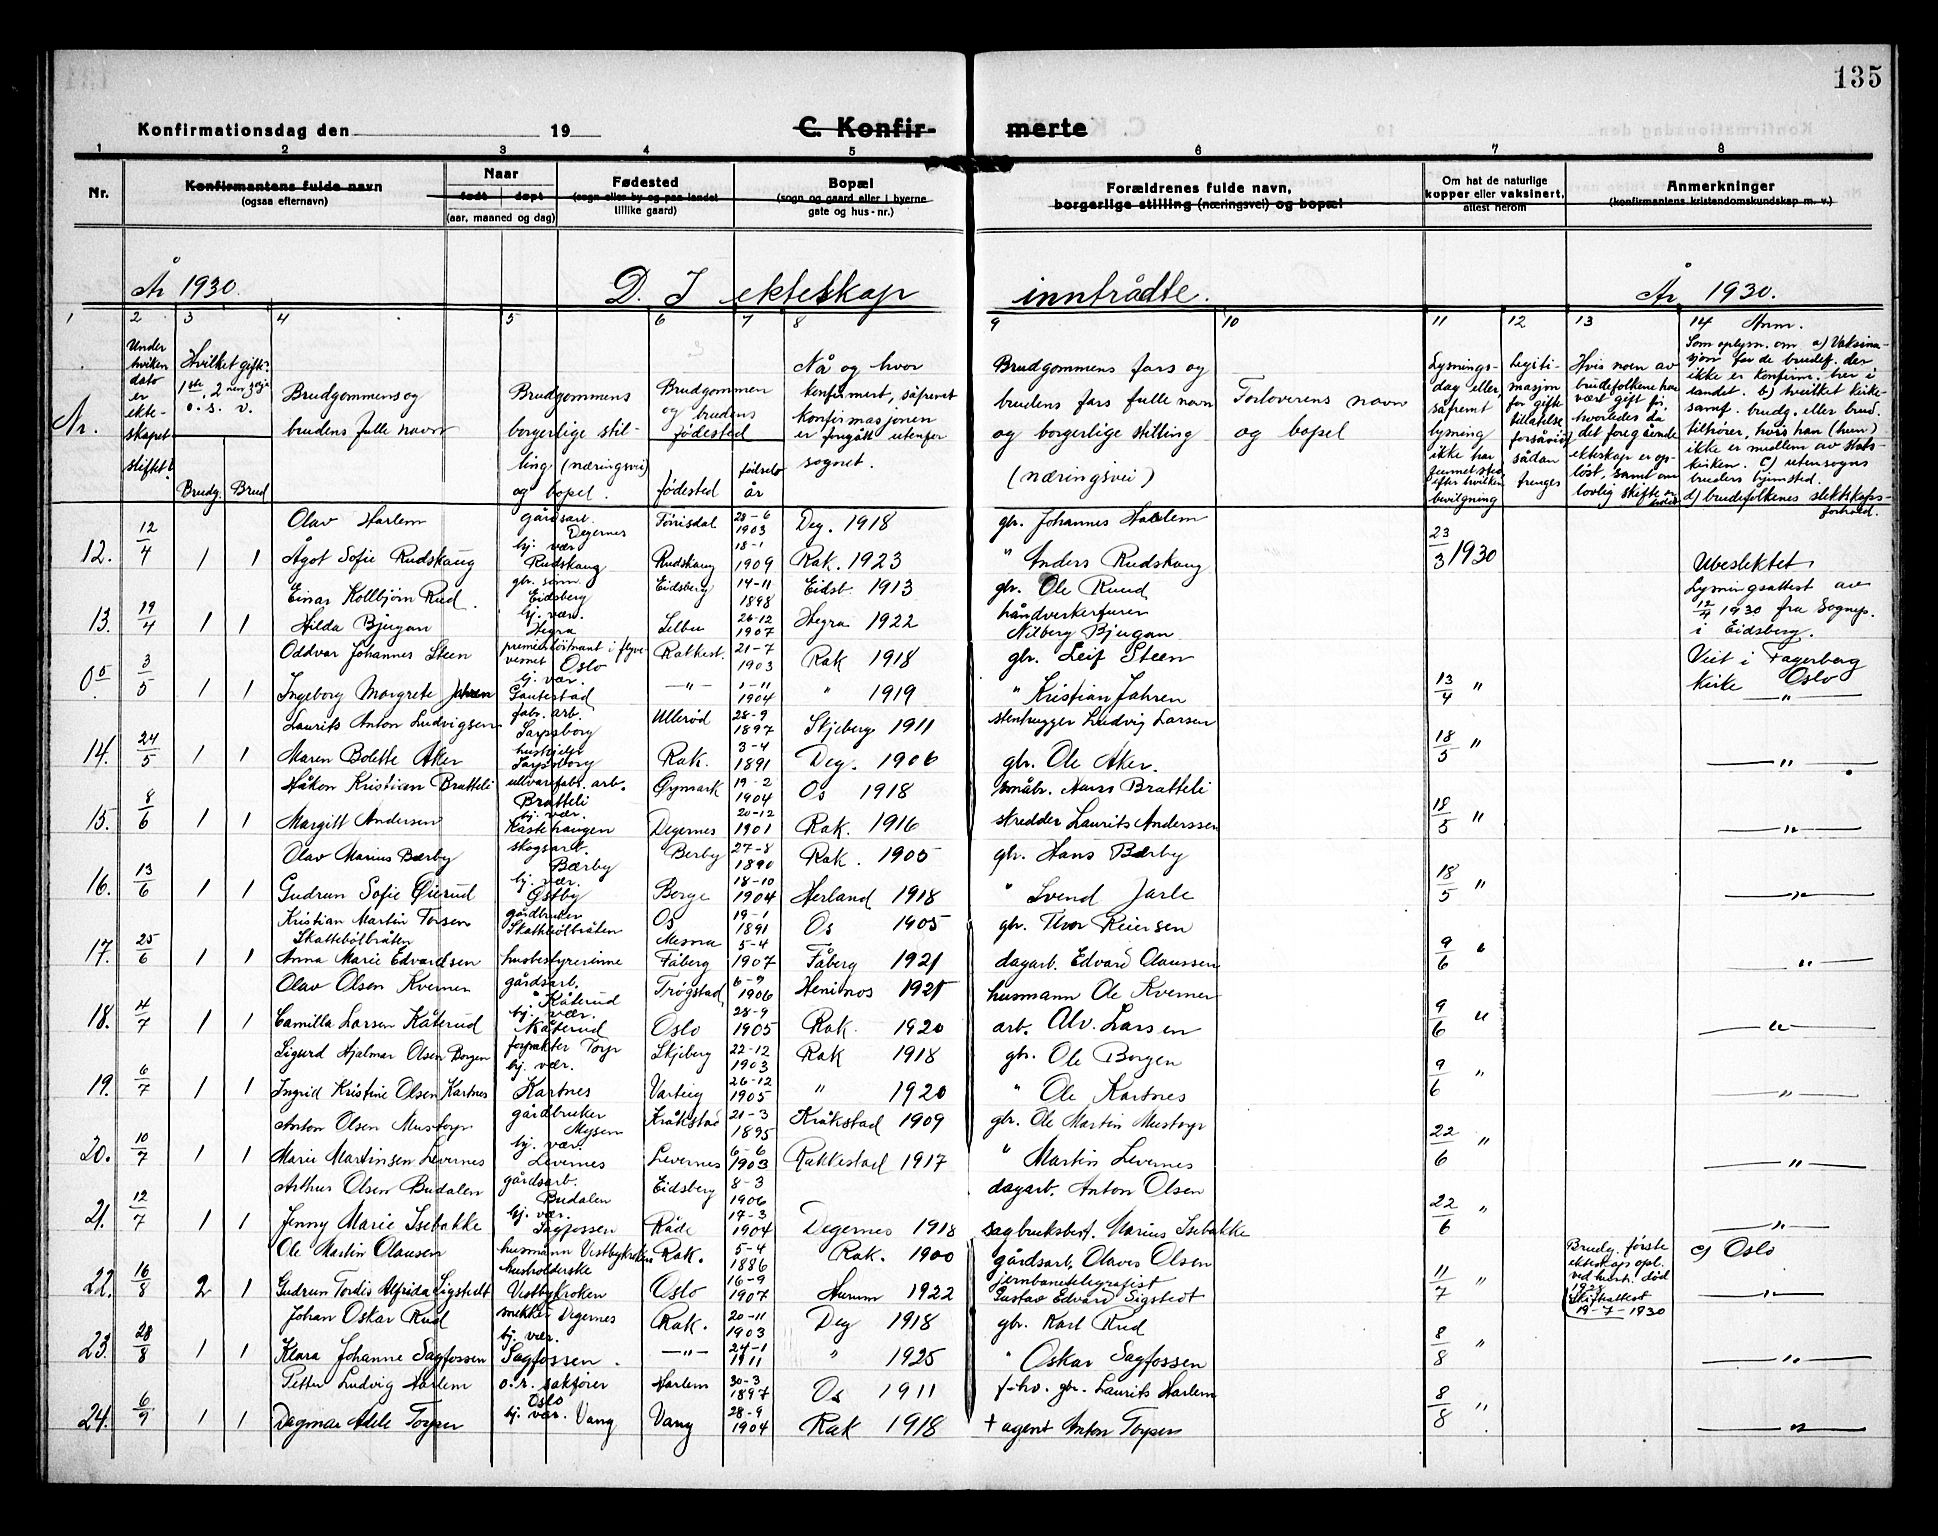 135
Konfirmationsdag den 19
C. Konfir- merte
1 2 3 4 5 6 7 8
Nr.
Konfirmantens fulde navn
(ogsaa efternavn)
Naar
født døpt
(aar, maaned og dag)
Fødested
(sogn eller by og paa landet
tillike gaard)
Bopæl
(sogn og gaard eller i byerne
gate og hus-nr.)
Forældrenes fulde navn,
borgerlige stilling (næringsvei) og bopæl
Om hat de naturlige
kopper eller vaksinert,
attest herom
Anmerkninger
(konfirmantens kristendomskundskap m. v.)
År 1930. D. I ekteskap inntrådte. År 1930.
1 2 3 4 5 6 7 8 9 10 11 12 13 14 Anm.
Nr.
Under
hviken
dato
er
ekte-
skapet
stiftet?
Hvilket gifte.
1ste, 2nen, 3dje
o. s. v.
Brudg. Brud
Brudgommens og
brudens fulle navn
Brudgommens
borgerlige stil-
ling (næringsvei)
og bopel.
Brudgommen
og brudens
fødested
fødested
fødsels
år
Nå og hvor
konfirmert, såfremt
konfirmasjonen
er foregått utenfor
sognet.
Brudgommens fars og
brudens fars fulle navn
og borgerlige stilling
(næringsvei)
Forloverens navn
og bopel
Lysnings-
dag eller
såfremt
lysning
ikke har
funnet sted
efter hvilken
bevilgning
Legiti-
masjon
for gifte
tillatelse
forsåvidt
sådan
trenges
Hvis noen av
brudefolkene har
vært gift før,
hvorledes da
det foregående
ekteskap er op-
løst, samt om
lovlig skifte er
holdt
Som oplysn. om a) Vaksina-
sjon for de brudef. der
ikke er konfirm. her i
landet. b) hvilket kirke-
samf. brudg. eller brud.
tilhører, hvis han (hun)
ikke er medlem av stats-
kirken. c) utensogns
bruders hjemsted.
d) brudefolkenes slektskaps-
forhold.
Olav Harlem gårdsarb. Degernes Tørrisdal 28-6 1903 Deg. 1918 gbr. Johannes Harlem
12. 12/4 1 1 Ågot Sofie Rudskaug hj. vær. Rudskaug Rudskaug 18-1 1909 Rak. 1923 " Anders Rudskaug 23/3 1930 Ubeslektet
Einar Kollbjørn Rud gbr. sønn Eidsberg Eidsberg 14-11 1898 Eidsb. 1913 gbr. Ole Ruud Lysningsattest av
12/4 1930 fra Sognep.
i Eidsberg.
13. 19/4 1 1 Hilda Bjugan hj. vær. Hegra Selbu 26-12 1907 Hegra 1922 håndverkerfuren
Nilberg Bjugan
Oddvar Johannes Steen premierløitnant i flyve-
vesnet Oslo Rakkest. 21-7 1903 Rak 1918 gbr. Leif Steen Viet i Fagerborg
kirke Oslo
05 3/5 1 1 Ingeborg Margrete Jahren hj. vær. Gautestad —"— 1-11 1904 " 1919 " Kristian Jahren 13/4 " —"—
Laurits Anton Ludvigsen fabr. arb. Sarpsborg Ullerød 28-9 1897 Skjeberg 1911 stenhugger Ludvig Larsen
14. 24/5 1 1 Maren Bolette Aker Sarpsborg Rak. 3-4 1891 Deg. 1906 gbr. Ole Aker. 18/5 " —"—
Håkon Kristian Bratteli ullvarefabr. arb. Bratteli Øymark 19-2 1904 Os 1918 småbr. Hans Bratteli
15. 8/6 1 1 Margitt Andersen hj. vær. Kastehaugen Degernes 20-12 1901 Rak. 1916 skredder Laurits Anderssen 18/5 " —"—
Olav Marius Bærby skogsarb. Bærby Berby 27-8 1890 Rak. 1905 gbr. Hans Bærby
16. 13/6 1 1 Gudrun Sofie Øierud hj. vær. Østby Borge 18-10 1904 Herland 1918 " Svend Jarle 18/5 " —"—
Kristian Martin Torsen
Skattebølbråten gårdbruker Skattebølbråten Os 19-1 1891 Os 1905 gbr. Thor Reiersen
17. 25/6 1 1 Anna Marie Edvardsen husbestyrerinne Mesna Fåberg 5-4 1907 Fåberg 1921 dagarb. Edvard Olaussen 9/6 " —"—
Olav Olsen Kverner gårdsarb. Kåterud Trøgstad 6-9 1906 Henienos 1921 husmann Ole Kverner
18. 4/7 1 1 Camilla Larsen Kåterud hj. vær. Kåterud Oslo 28-9 1905 Rak. 1920 arb. Alv. Larsen 9/6 " —"—
Sigurd Hjalmar Olsen Borgen forpakter Torp Skjeberg 22-12 1903 Rak 1918 gbr. Ole Borgen
19. 6/7 1 1 Ingrid Kristine Olsen Kartnes hj. vær. Kartnes Varteig 26-12 1905 " 1920 " Ole Kartnes 9/6 " —"—
Anton Olsen Mustorp gårdbruker Mysen Kråkstad 21-3 1895 Kråkstad 1909 gbr. Ole Martin Mustorp
20. 10/7 1 1 Marie Martinsen Levernes hj. vær. Levernes Levernes 6-6 1903 Rakkestad 1917 " Martin Levernes 22/6 " —"—
Arthur Olsen Budalen gårdsarb. Budalen Eidsberg 8-3 1906 dagarb. Anton Olsen
21. 12/7 1 1 Jenny Marie Isebakke hj. vær. Sagfossen Råde 17-3 1904 Degernes 1918 sagbruksbest. Marius Isebakke 22/6 " —"—
Ole Martin Olausen husmann Vestbykroken Rak. 5-4 1886 Rak. 1900 gårdsarb. Olaves Olsen Brudg. første
ekteskap opl.
ved hustr. død
Skifteattest
19-7-1930 c) Oslo
22. 16/8 2 1 Gudrun Tordis Alfrida Sigstedt husholderske Vestbykroken Oslo 16-9 1907 Hurum 1922 jernbanetelegrafist
Gustav Edvard Sigstedt 11/7 " —"—
Johan Oskar Rud snekker Degernes Rak. 20-11 1903 Deg 1918 gbr. Karl Rud
23. 28/8 1 1 Klara Johanne Sagfossen hj. vær. Sagfossen. —"— 24-1 1911 " 1925 " Oskar Sagfossen 8/8 " —"—
Petter Ludvig Harlem o.r. sakfører Oslo Harlem 30-3 1897 Os 1911 f-hv. gbr. Laurits Harlem
24. 6/9 1 1 Dagmar Adele Torper hj. vær. Vang Vang 28-9 1904 Rak 1918 + agent Anton Torpen 8/8 " —"—